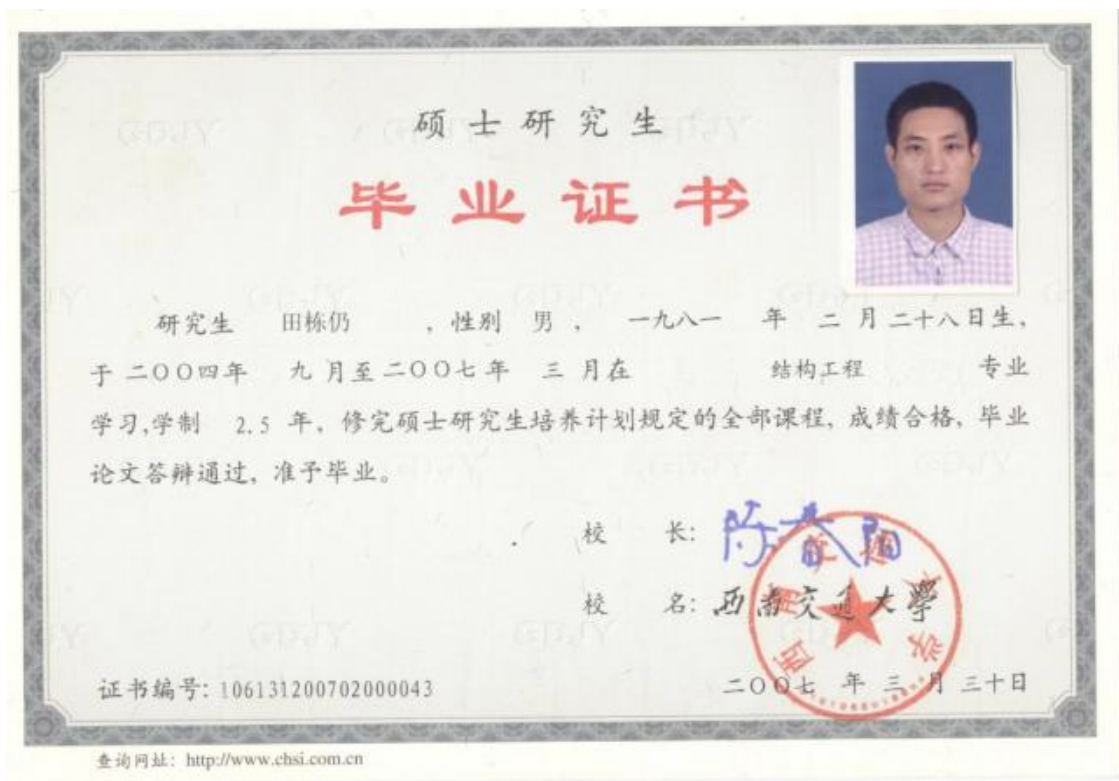 硕士研究生
毕业证书
研究生 田栋仍 , 性别 男 , 一九八一 年 二 月 二十八日生,
于 二〇〇四年 九 月至 二〇〇七 年 三 月在 结构工程 专业
学习,学制 2.5 年, 修完硕士研究生培养计划规定的全部课程, 成绩合格, 毕业
论文答辩通过, 准予毕业。
校 长: 陈春阳
校 名: 西南交通大學
西南交通大学
证书编号: 106131200702000043
二〇〇七 年 三 月 三十日
查询网址: http://www.chsi.com.cn